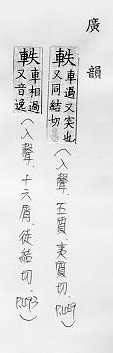 廣韻
軼 車過又突也又同結切 (入聲.五質.夷質切.P.469)
軼 車相過又音逸 (入聲.十六屑.徒結切.P.493)